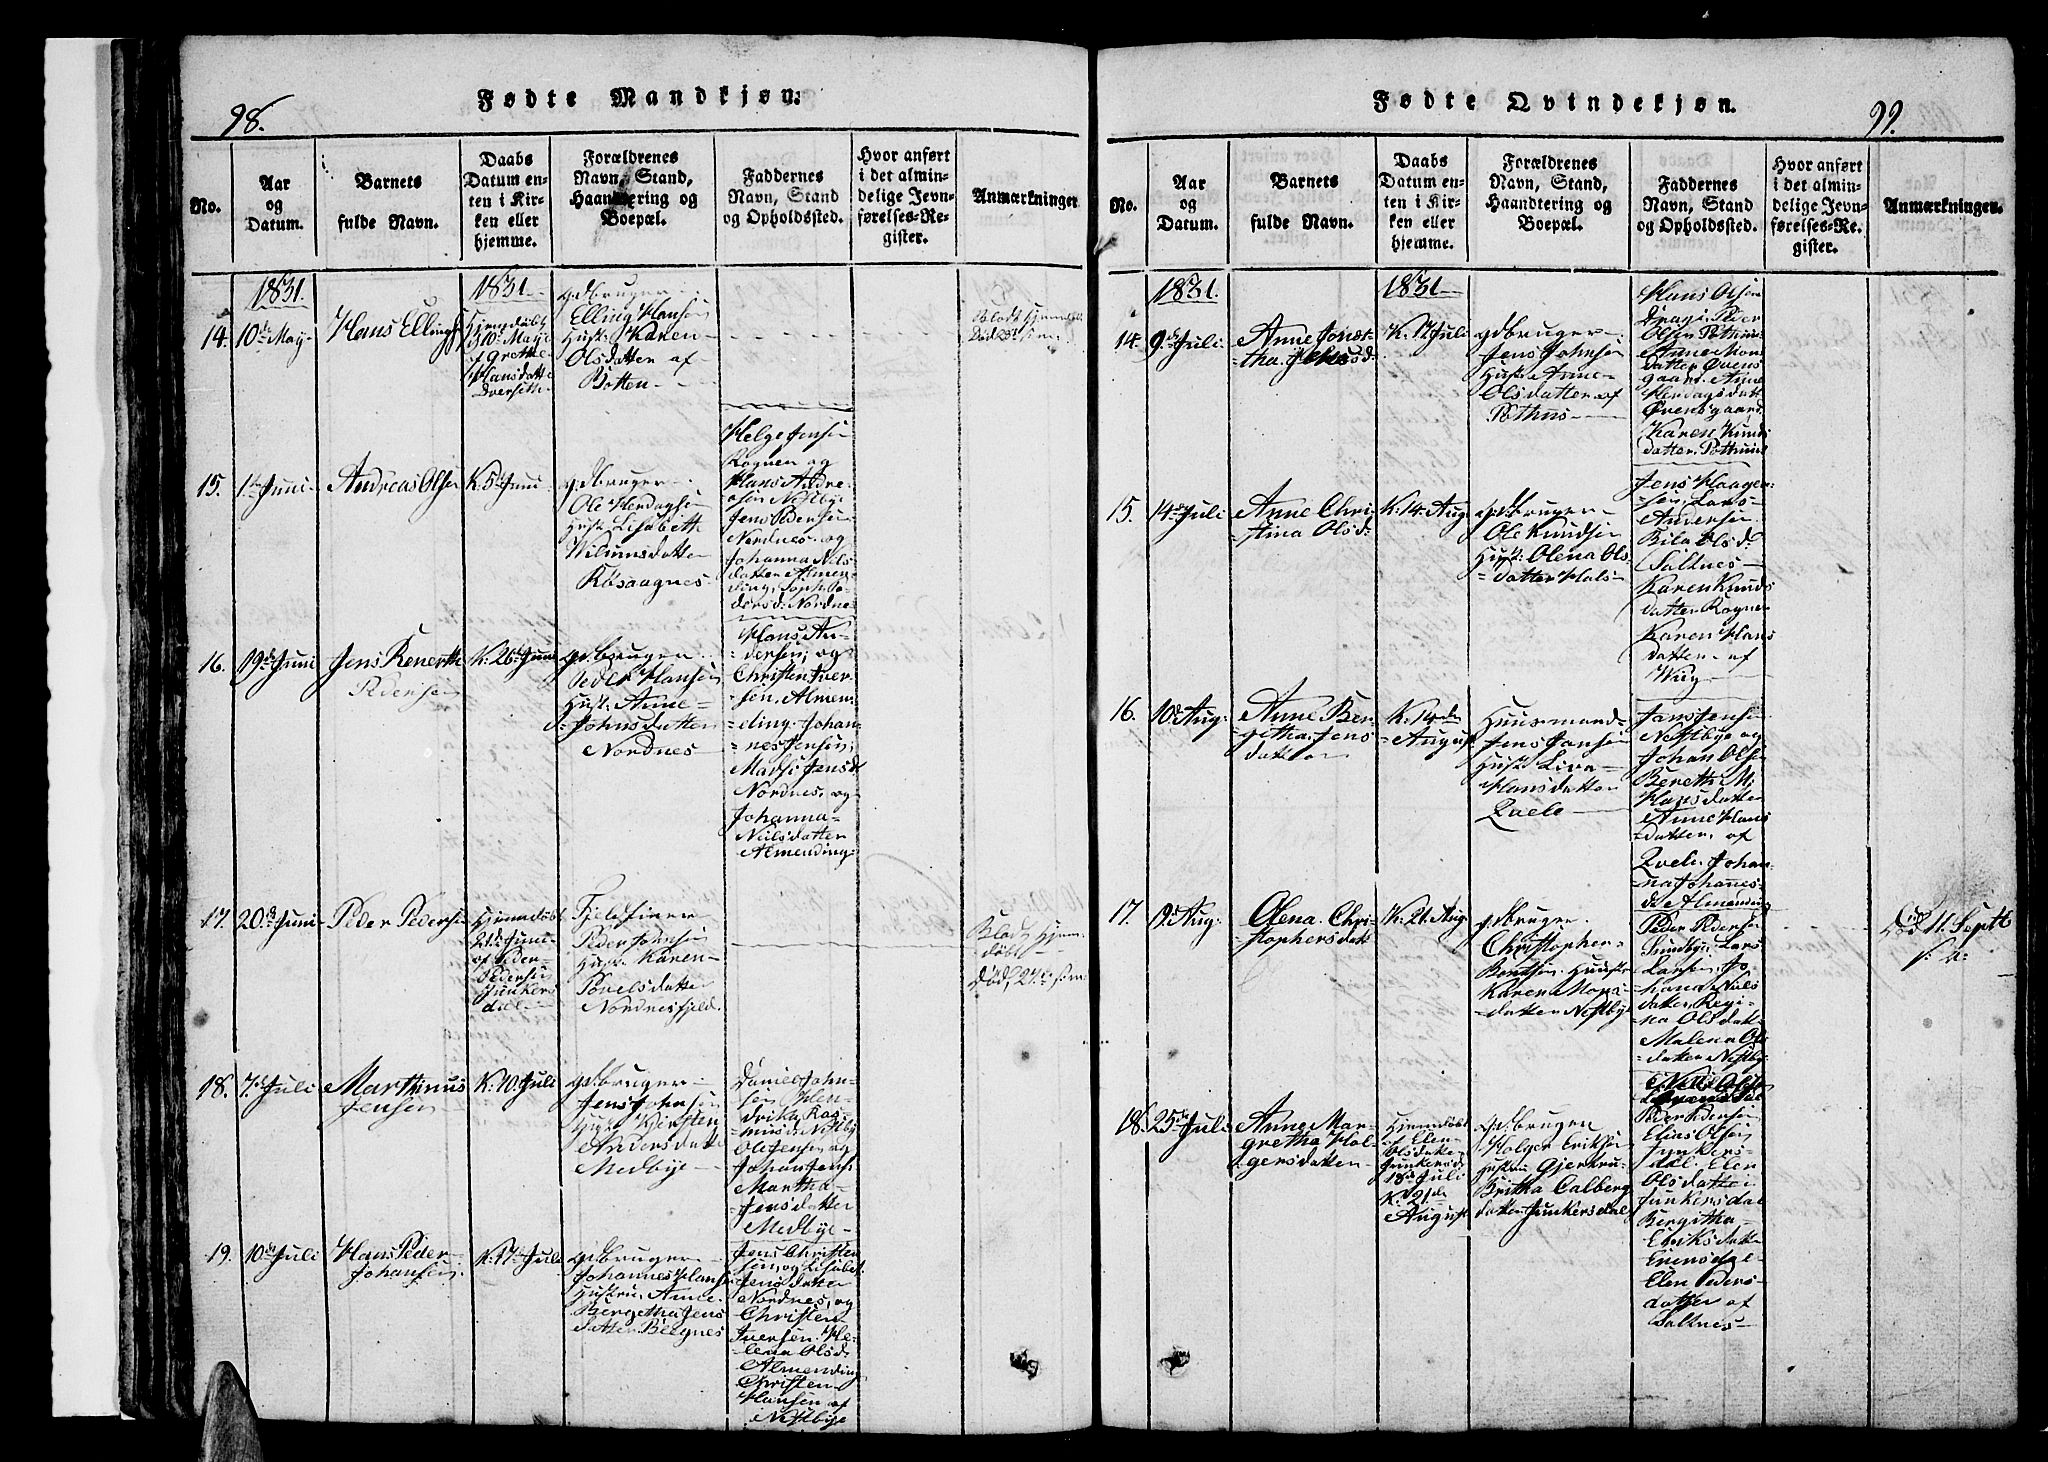 98.
Fødte Mandkjøn.
No.
Aar
og
Datum.
Barnets
fulde Navn.
Daabs
Datum en-
ten i Kir-
ken eller
hjemme.
Forældrenes
Navn, Stand,
Haandtering og
Boepæl.
Faddernes
Navn, Stand
og Opholdssted.
Hvor anført
i det almin-
delige Jevn-
førelses-Re-
gister.
Anmærkninger
1831.
1831.
14.
10de May
Hans Ellings
Hjemdøbt
10de May
af Grethe
Hansdatte
gdbruger
Elling Hansen
Hust: Karen
Olsdatter af
Botten
15.
1ste Juni
Andreas Olsen
K: 5te Juni
gdbruger
Ole Herdagsen
Hust: Lisabeth
Wilumsdatter
Helge Jensen
Rognen og
Hans Andre-
=sen Nestbye
Jens Pedersen
Nordnes og
Johanna Nils
datter Almen-
ding,
dersd: Nordnes
16.
19de Juni
Jens Renerth
Pedersen
K: 26de Juni
gdbruger
Peder Hansen
Hust: Anne
Johnsdatter
Nordnes
Hans An-
=dersen, og
Christen Iver-
=sen, Almen-
=ding. Johan-
=nes Jensen,
Jensd:
Nordnes, og
Johanna
Nielsdatter
Almending
17.
20de Juni
Peder Pedersen
Hjemdøbt
21de Juni
af Peder
Pedersen
Junkers
dal
Fjelefinner
Peder Johnsen
Hust: Karen
Povelsdatter
Nordnesfjeld.
Blodt Hjem-
døbt
Død, 24de
18.
7de Juli
Marthinus
Jensen
K: 10de Juli
gdbruger
Jens Johnsen
Hust: Kjersten
Andersdatt:
Medbye
Daniel John-
sen Hen-
drika Ras-
musd: Nestby
Ole Jensen og
Johan Jens:
Martha
Jensdatter
Medbye
19.
10de Juli
Hans Peder
Johansen
K: 17de Juli
gdbruger
Johannes Hansen
Hustrue, Anne
Bergetha Jens
datter
Jens Christen
sen, og Lisabet
Jensdatter
Nordnes, og
Christen
Iversen. He-
=lena Olsd:
Almending
Christen
Hansen af
Nestbye
Fødte Qvindekjøn.
99.
No.
Aar
og
Datum.
Barnets
fulde Navn.
Daabs
Datum en-
ten i Kir-
ken eller
hjemme.
Forældrenes
Navn, Stand,
Haandtering og
Boepæl.
Faddernes
Navn, Stand
og Opholdssted.
Hvor anført
i det almin-
delige Jevn-
førelses-Re-
gister.
Anmærkningen.
1831.
1831
14.
9de Juli
Anne Jonet-
=tha. Jensd:
K: 17 Juli
gdbruger
Jens Johnsen
Hust: Anne
Olsdatter af
Pothus
Hans Olsen
Peder
Olsen Pothuus
Anne Mons
datter Evens
gaard. Anne
Herdagsdatt
Evensgaard
Karen Knuds
datter Pothuus
15.
14de Juli
Anne Chri-
=stina Olsd:
K: 14 Aug:
gdbruger
Ole Knudsen
Hust: Olena Ols
=datter Hals
Jens Haagen-
=sen, Lars
Andersen
Olsd:
Saltnes
Karen Knuds
datter Rognen
Karen Hans
datter af
Wiig
16.
10de Aug:
Anne Ber-
getha Jens
datter
K: 14de
August
Huusmand
Jens Jansen
Hust: Liva
Hansdatter
Qvele
Jens Jensen
Nestbye og
Johan Olsen
Bereth M:
Hansdatter
Anne Hans
datter, af
Qvele. Johan-
=na Johannes-
d: Almending
17.
9de Aug:
Olena Chri-
stophersdatt:
K: 21. Aug:
gdbruger.
Christopher
Bentsen. Hust:
Karen Mons
datter Nestbye
Peder Pedersen
Lars
Larsen, Jo
hana Niels
datter. Regi-
=na Olsdatt:
Malena Ols
datter Nestby.
Død 11. Septb
s: a:
18.
25de Juli
Anne Mar-
gretha Hol-
gersdatter
Hjemdøbt
af Elen
Olsdatter
Junkersd:
18de Juli
K: 21de
August
gdbruger
Holger Eriksen
Hustru Gjertru-
Britha Calberg
datter Junkersdal
Peder Pedersen
Elias Olsen
Junkers-
dal. Elen
Olsdatter
Junkersdal
Bergitha
Eriksdatter
Evensdal
Elen Peders-
datter af
Saltnes